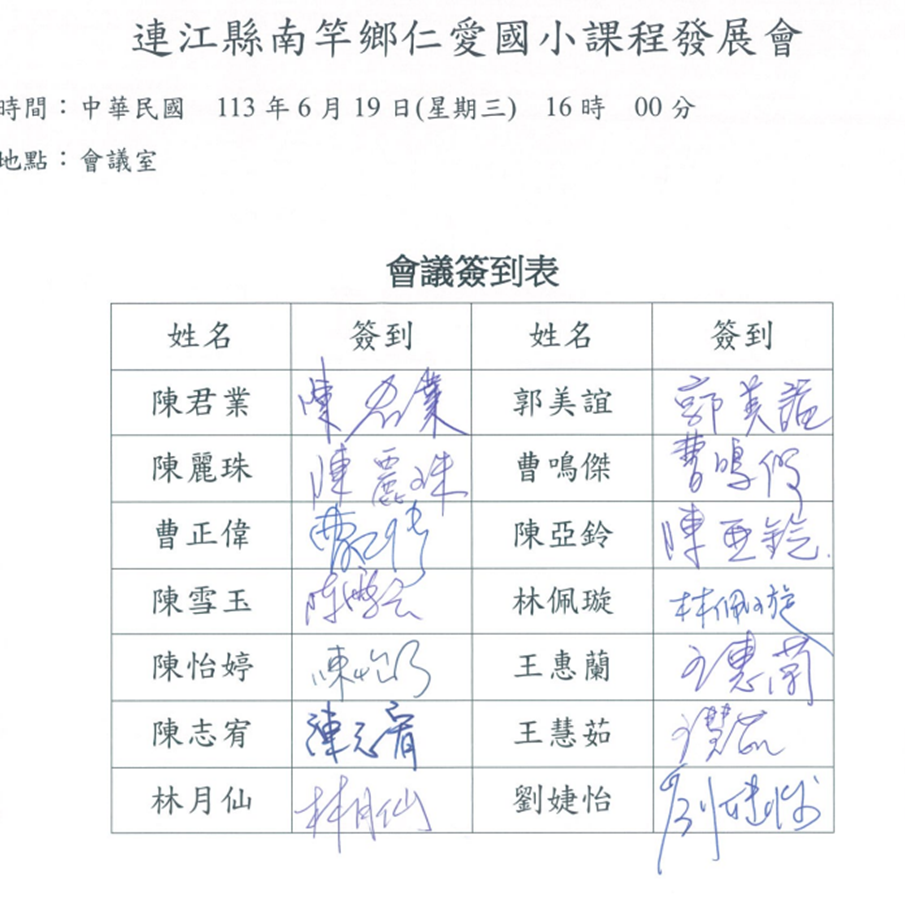 連江縣南竿鄉仁愛國小課程發展會
時間：中華民國 113 年 6 月 19 日(星期三) 16 時 00 分
地點：會議室
會議簽到表
姓名 簽到 姓名 簽到
陳君業 陳君業 郭美誼 郭美誼
陳麗珠 陳麗珠 曹鳴傑 曹鳴傑
曹正偉 曹正偉 陳亞鈴 陳亞鈴
陳雪玉 陳雪玉 林佩璇 林佩璇
陳怡婷 陳怡婷 王惠蘭 王惠蘭
陳志宥 陳志宥 王慧茹 王慧茹
林月仙 林月仙 劉婕怡 劉婕怡